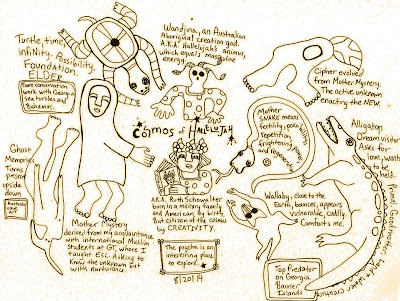 Turtle, time,
infinity. Possibility.
Foundation.
ELDER
More conservation
work with Georgia
sea turtles and
Bahamas.
Wandjina, an Australian
Aboriginal creation god
A.K.A. Hallelujah's animus,
which equals masculine
energy
Cipher evolved
from Mother Mystery.
The active unknown
enacting the NEW.
Cosmos of HALLELUJAH
Mother
SNAKE means
fertility, power,
repetition,
frightening
and regenerative
Alligator
Dream visitor
Asks for
love, wants
held.
Ghost
Memories
Turns
present
upside
down
Australia
Mother Mystery
derived from my acquaintance
with international Muslim
students at GT, where I
taught ESL. Asking to
know the unknown but
with nurturance.
A.K.A. Ruth Schowalter
born in a military family
and American by birth.
But citizen of the cosmos
by CREATIVITY.
The psyche is an
interesting place
to explore.
8/20/14
Wallaby, close to the
Earth, bounces, appears
vulnerable, cuddly.
Comforts me.
Top Predator
on Georgia
Barrier
Islands